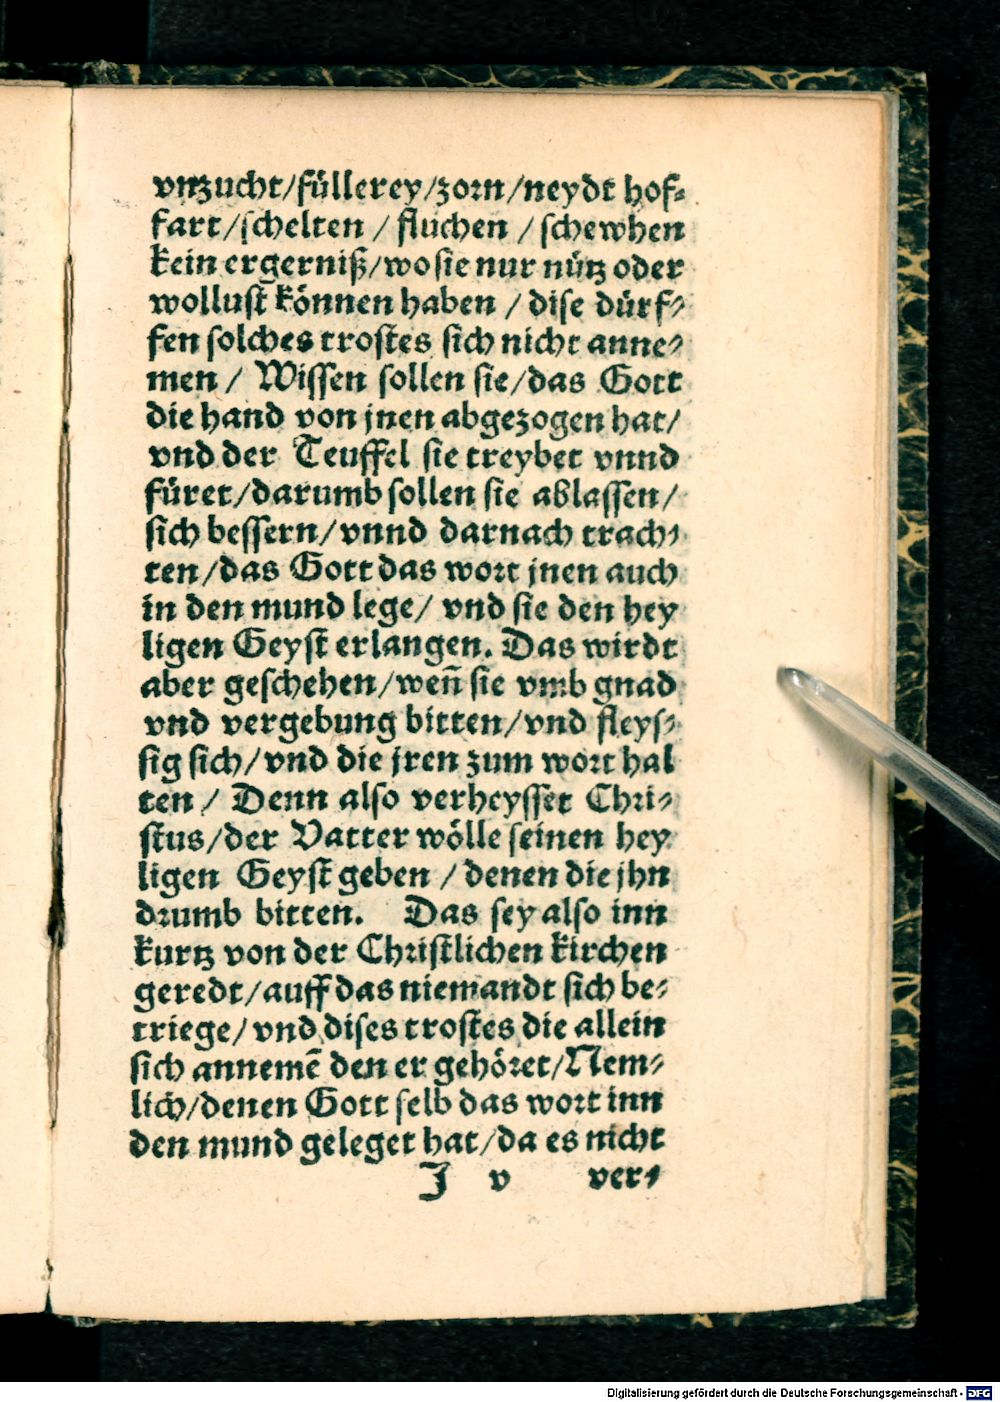 vntzucht/füllerey/zorn/neydt hof⸗
fart/schelten / fluchen / schewhen
kein ergerniß/wo sie nur nütz oder
wollust können haben / dise dürf⸗
fen solches trostes sich nicht anne⸗
men / Wissen sollen sie/das Gott
die hand von jnen abgezogen hat/
vnd der Teuffel sie treybet vnnd
füret/darumb sollen sie ablassen/
sich bessern/vnnd darnach trach⸗
ten/das Gott das wort jnen auch
in den mund lege/ vnd sie den hey
ligen Geyst erlangen. Das wirdt
aber geschehen/weñ sie vmb gnad
vnd vergebung bitten/vnd fleys⸗
sig sich/vnd die jren zum wort hal
ten / Denn also verheysset Chri⸗
stus/der Vatter wölle seinen hey
ligen Geyst geben / denen die jhn
drumb bitten. Das sey also inn
kurtz von der Christlichen kirchen
geredt/auff das niemandt sich be⸗
triege/vnd dises trostes die allein
sich annemē den er gehöret/Nem⸗
lich/denen Gott selb das wort inn
den mund geleget hat/da es nicht
J v ver⸗
Digitalisierung gefördert durch die Deutsche Forschungsgemeinschaft - DFG